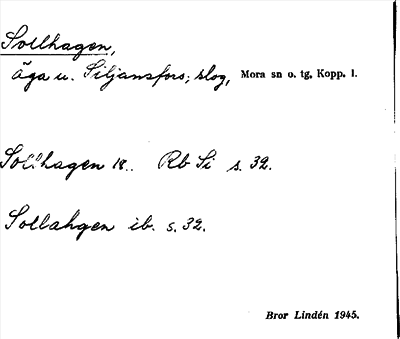 Sollhagen,
äga u. Siljansfors; skog, Mora sn o. tg, Kopp. l.
Sollhagen 18.. Rb Si s. 32.
Sollahgen ib. s. 32.
Bror Lindén 1945.